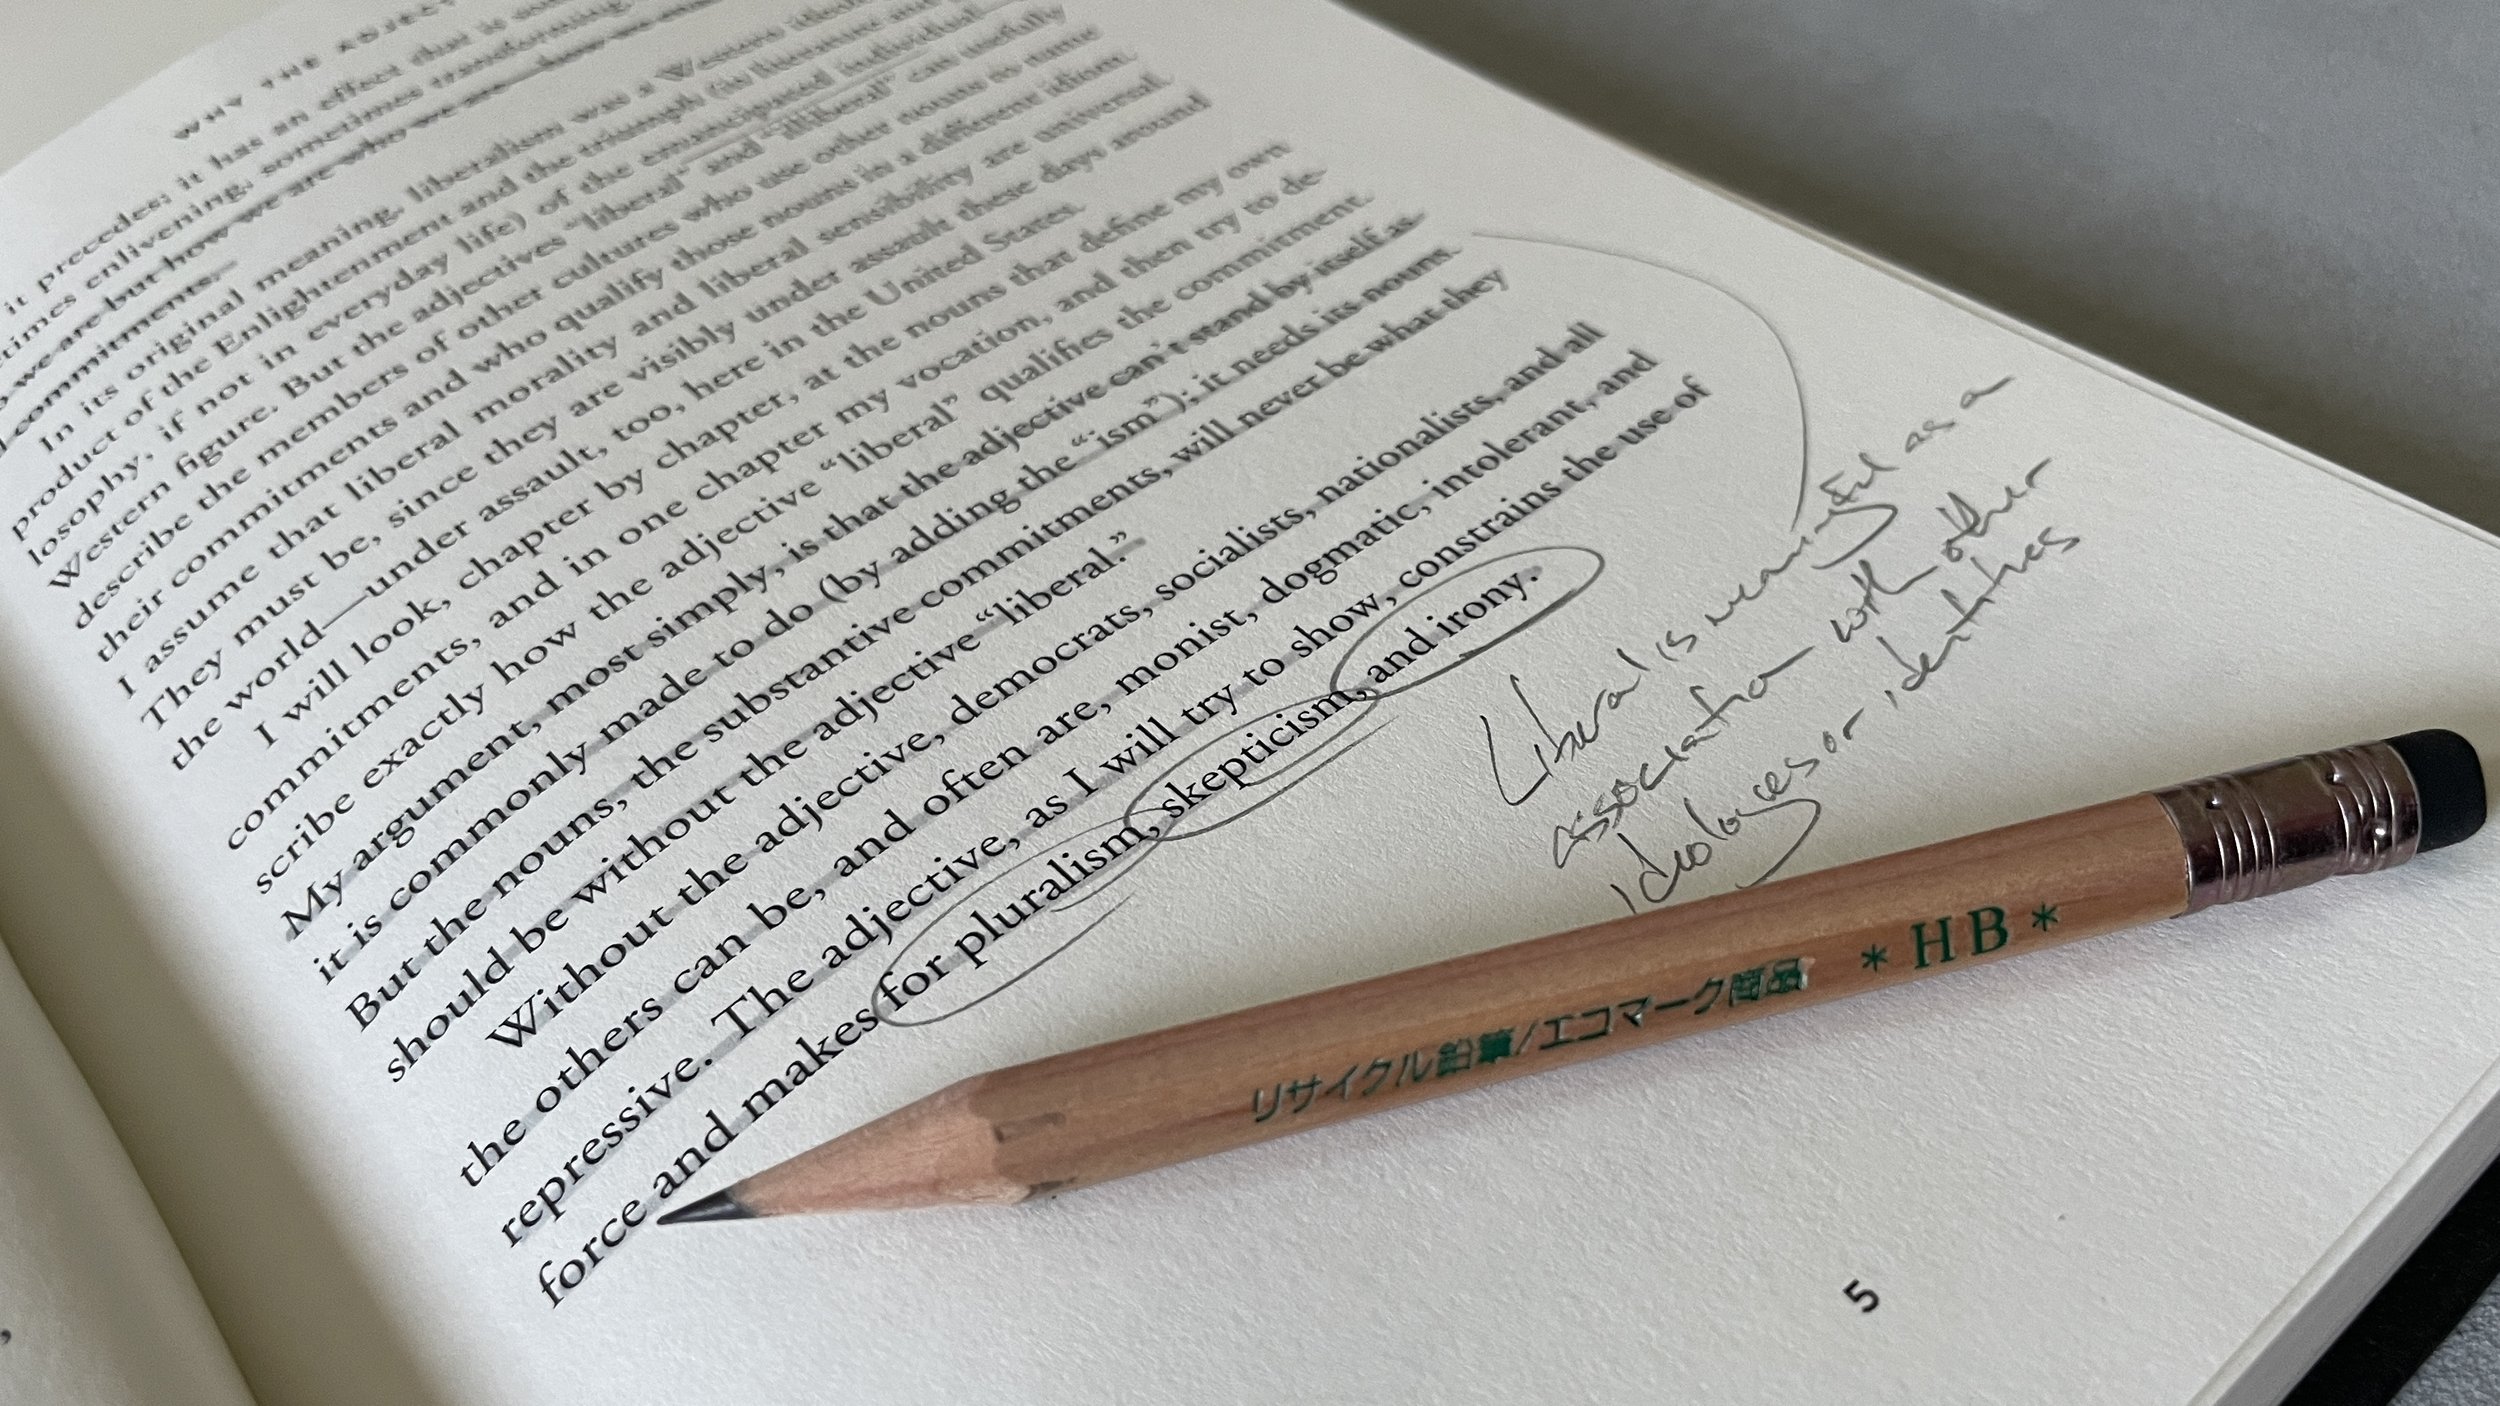 WHY THE ADJECT
it precedes; it has an effect that is
times enlivening, sometimes transforming.
we are but how we are who we are—
commitments.
In its original meaning, liberalism was a Western
product of the Enlightenment and the triumph (in literature and
losophy, if not in everyday life) of the emancipated individual
Western figure. But the adjectives “liberal” and “illiberal” can usefully
describe the members of other cultures who use other nouns to name
their commitments and who qualify those nouns in a different idiom.
I assume that liberal morality and liberal sensibility are universal.
They must be, since they are visibly under assault these days around
the world—under assault, too, here in the United States.
I will look, chapter by chapter, at the nouns that define my own
commitments, and in one chapter my vocation, and then try to de-
scribe exactly how the adjective “liberal” qualifies the commitment.
My argument, most simply, is that the adjective can’t stand by itself as
it is commonly made to do (by adding the “ism”); it needs its nouns.
But the nouns, the substantive commitments, will never be what they
should be without the adjective “liberal.”
Without the adjective, democrats, socialists, nationalists, and all
the others can be, and often are, monist, dogmatic, intolerant, and
repressive. The adjective, as I will try to show, constrains the use of
force and makes for pluralism, skepticism, and irony.
Liberal is meaningful as a
association with other
ideologies or identities
リサイクル鉛筆/エコマーク商品 * HB *
5